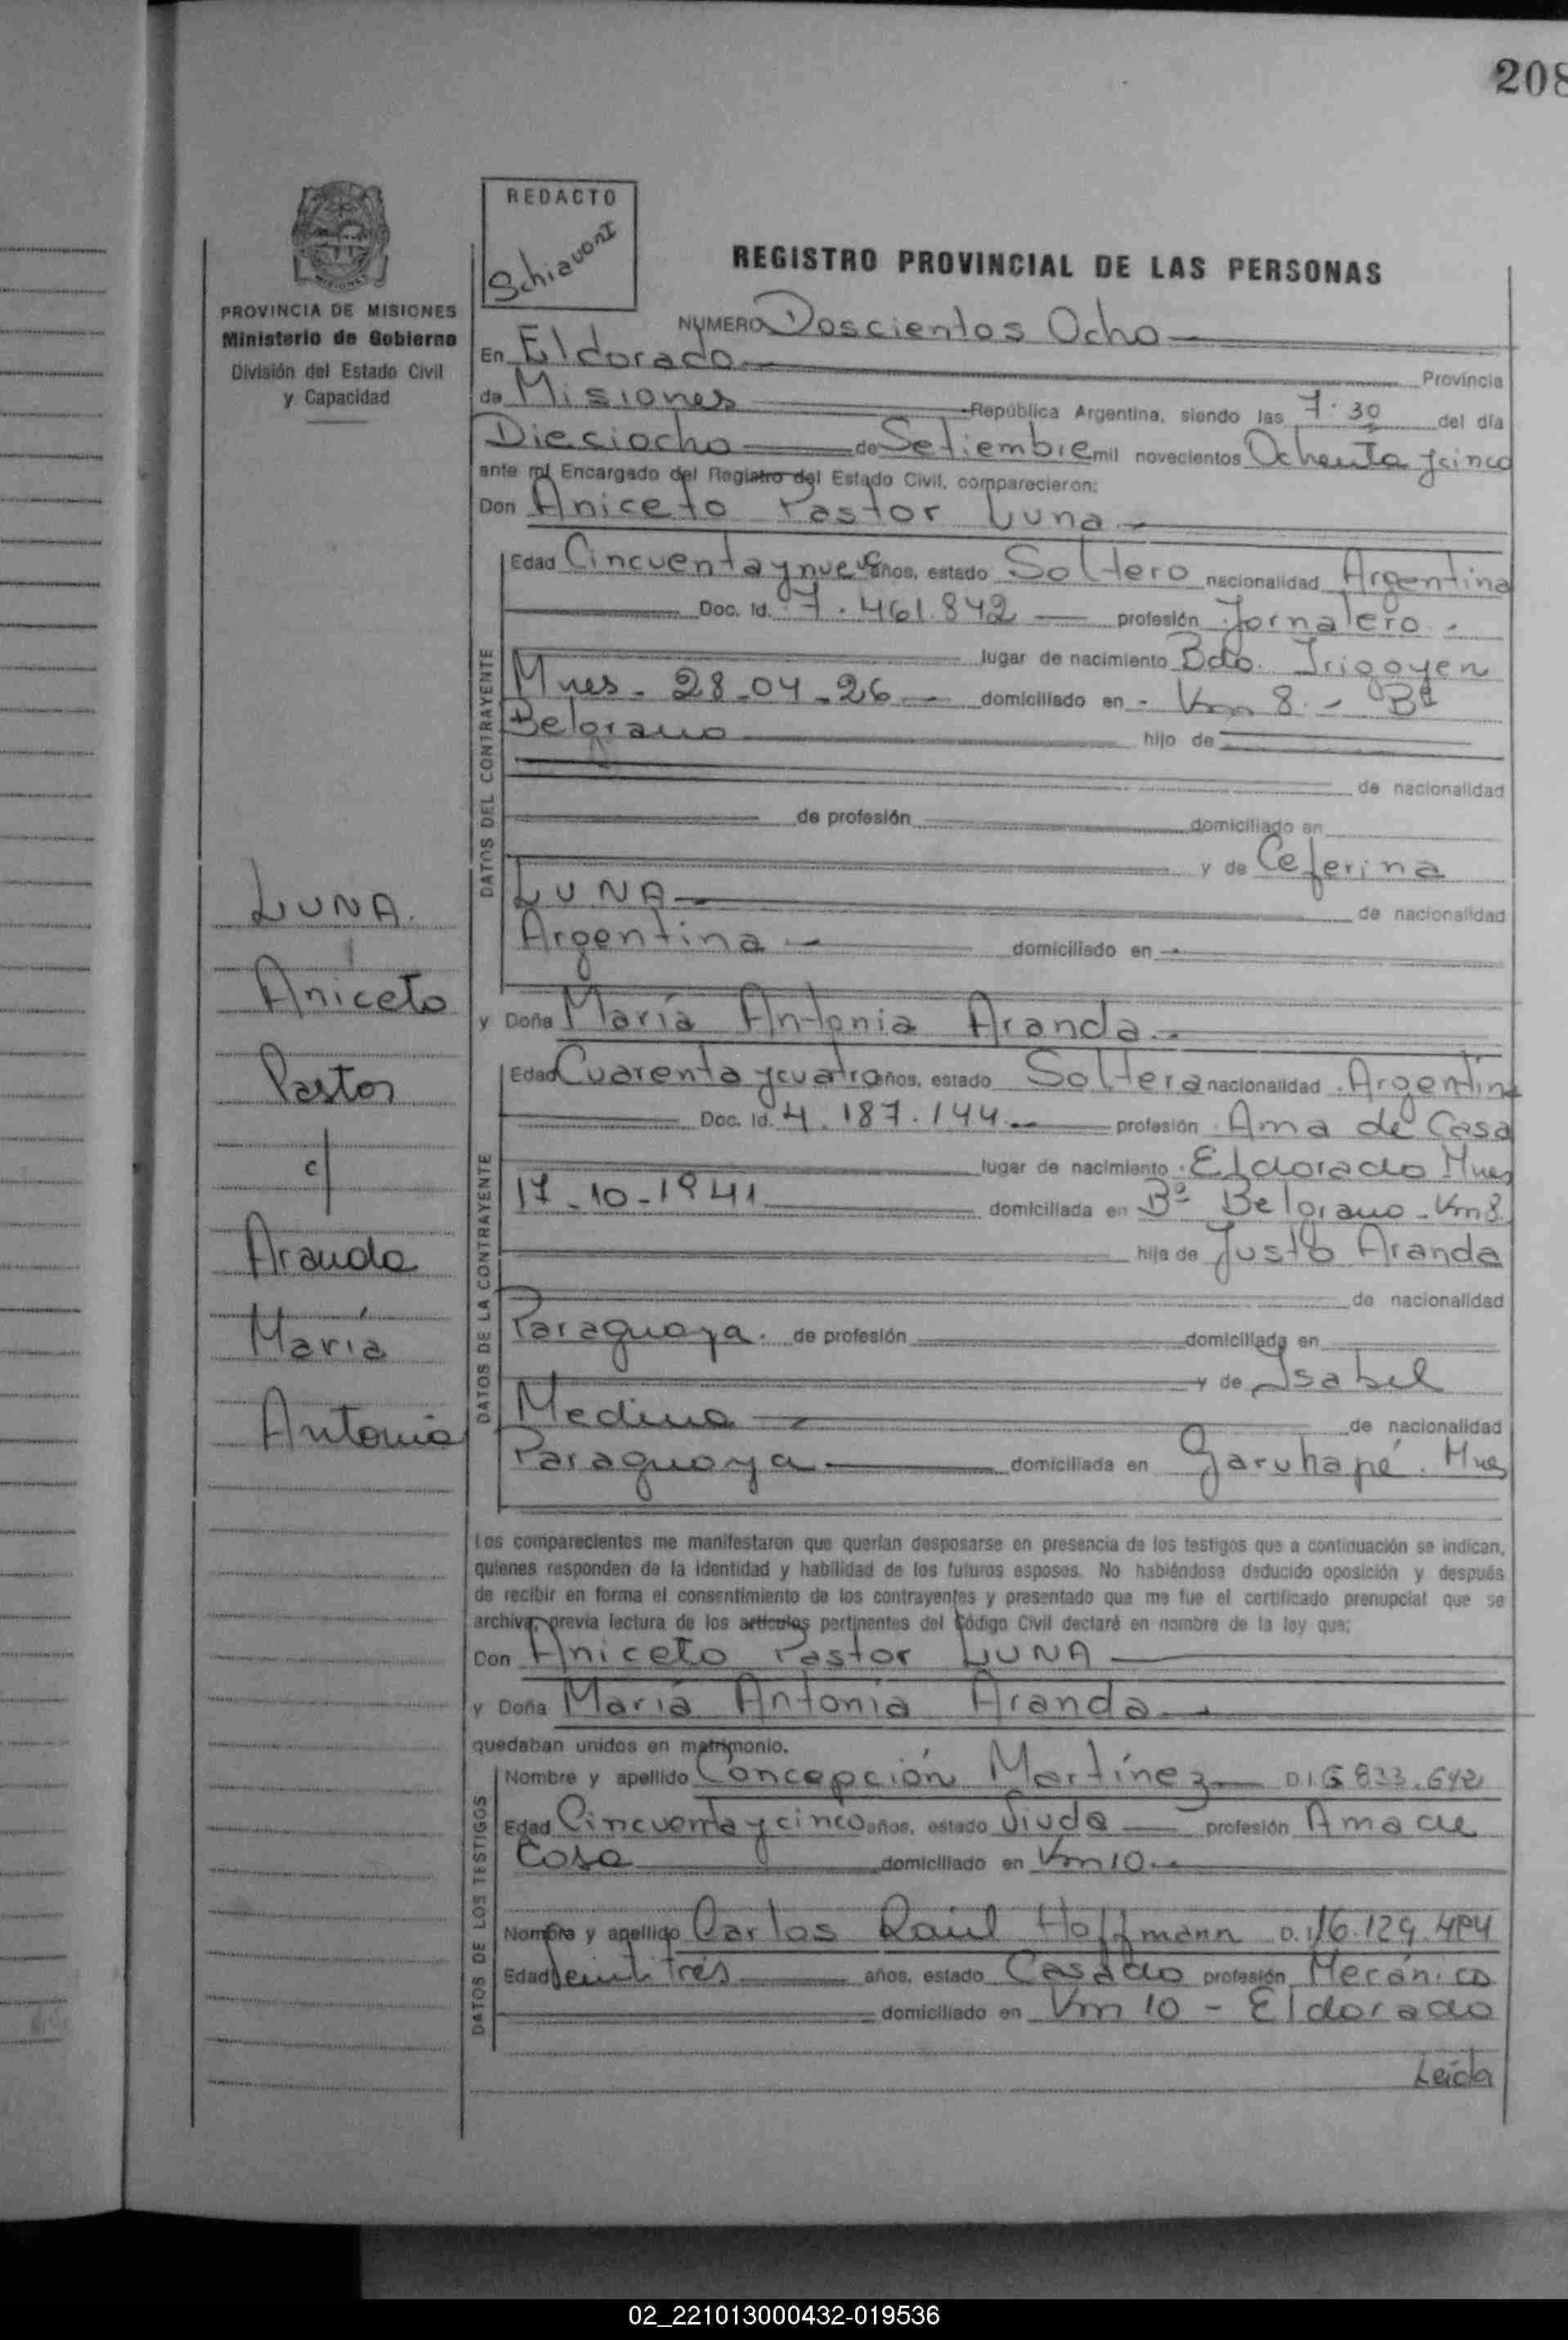 208
REDACTO
Schiavoni
PROVINCIA DE MISIONES
Ministerio de Gobierno
División del Estado Civil
y Capacidad
REGISTRO PROVINCIAL DE LAS PERSONAS
NUMERO Doscientos Ocho
En Eldorado Provincia
de Misiones República Argentina, siendo las 7:30 del día
Dieciocho de Setiembre mil novecientos Ochenta y cinco
ante mí Encargado del Registro del Estado Civil, comparecieron:
Don Aniceto Pastor Luna
DATOS DEL CONTRAYENTE
Edad Cincuenta y nueve años, estado Soltero nacionalidad Argentina
Doc. Id. 7.461.842 profesión Jornalero
lugar de nacimiento Bdo. Irigoyen
Mnes - 28-04-26 domiciliado en - Km 8. - Bº
Belgrano hijo de
de nacionalidad
de profesión domiciliado en
y de Ceferina
LUNA de nacionalidad
Argentina domiciliado en
y Doña María Antonia Aranda
DATOS DE LA CONTRAYENTE
Edad Cuarenta y cuatro años, estado Soltera nacionalidad Argentina
Doc. Id. 4.187.144 profesión Ama de Casa
lugar de nacimiento Eldorado Mnes
17-10-1941 domiciliada en Bº Belgrano - Km 8
hija de Justo Aranda
de nacionalidad
Paraguaya. de profesión domiciliada en
y de Isabel
Medina de nacionalidad
Paraguaya domiciliada en Garuhapé. Mnes
LUNA.
Aniceto
Pastor
c/
Aranda
María
Antonia
Los comparecientes me manifestaron que querían desposarse en presencia de los testigos que a continuación se indican,
quienes responden de la identidad y habilidad de los futuros esposos. No habiéndose deducido oposición y después
de recibir en forma el consentimiento de los contrayentes y presentado que me fue el certificado prenupcial que se
archiva, previa lectura de los artículos pertinentes del Código Civil declaré en nombre de la ley que:
Don Aniceto Pastor LUNA
y Doña María Antonia Aranda
quedaban unidos en matrimonio.
DATOS DE LOS TESTIGOS
Nombre y apellido Concepción Martínez D.I. 6 833.642
Edad Cincuenta y cinco años, estado Viuda profesión Ama de
Casa domiciliado en Km 10
Nombre y apellido Carlos Raúl Hoffmann D.I. 16.129.484
Edad Veinti Trés años, estado Casado profesión Mecánico
domiciliado en Km 10 - Eldorado
Leída
02_221013000432-019536